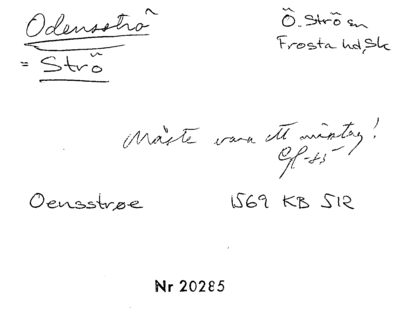 Odensströ
= Strö
Ö. Strö sn
Frosta hd, Sk
Måste vara ett misstag!
GH-85
Oensstrøe 1569 KB 512
Nr 20285